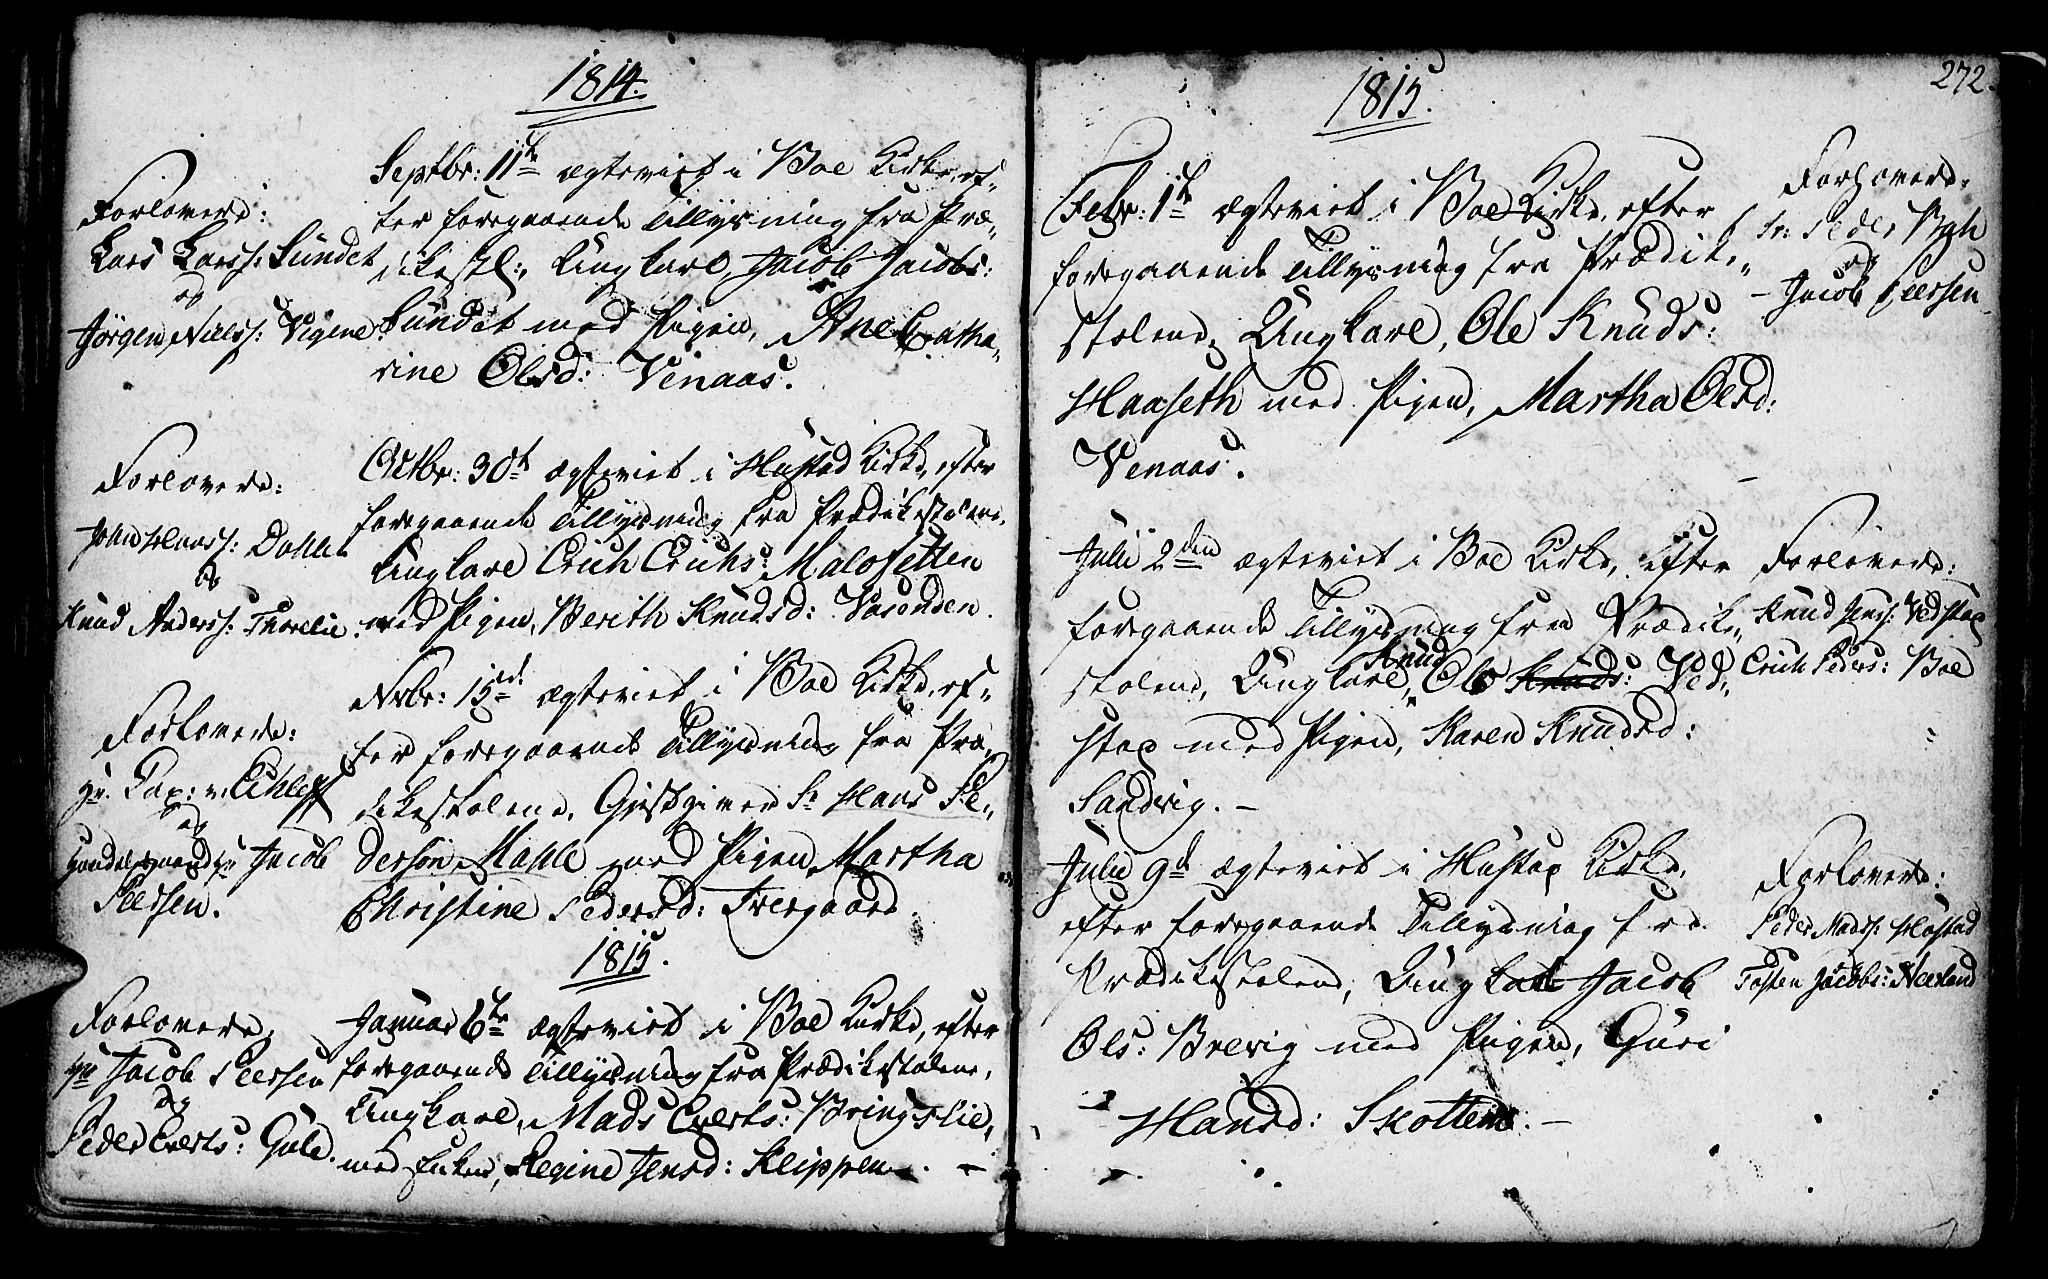 1814.
Forlovere:
Lars Larss: Sundet
og
Jørgen Nielss: Vigene.
Septbr: 11te ægteviet i Boe Kirke, ef-
ter foregaaende Tillysning fra Præ-
dikestl:, Ungkarl Jacob Jacobs:
Sundet med Pigen, Ane Catha-
rine Olsd: Venaas.
Forlovere:
John Clauss: Dahle
og
Knud Anderss: Thorelie.
Octbr: 30te ægteviet i Hustad Kirke, efter
foregaaende Tillysning fra Prædikestolene,
Ungkarl Erich Erichs: Malosetten
med Pigen, Berith Knudsd: Vasenden.
Forlovere:
Hr. Cap: v. Ehleff
og
Handelsmand Hr Jacob
Peersen.
Nvbr: 15de ægteviet i Boe Kirke, ef-
ter foregaaende Tillysning fra Præ-
dikestolene, Gjestgiver Sr Hans Pe-
dersøn Mahle med Pigen, Martha
Christine Pedersd: Tvergaard.
1815.
Forlovere,
Hr Jacob Peersen
og
Peder Everts: Gule.
Januar 6te ægteviet i Boe Kirke, efter
foregaaende Tillysning fra Prædikestolene,
Ungkarl, Mads Everts: Bringslie,
med Enken, Regine Jensd: Klippen. -
272.
1815.
Febr: 1te ægteviet i Boe Kirke, efter
foregaaende Tillysning fra Prædike-
stolene, Ungkarl, Ole Knuds:
Haaseth med Pigen, Martha Olsd:
Venaas.
Forlovere.
Sr: Peder Bgh
og
- Jacob Peersen
Julii 2den ægteviet i Boe Kirke, efter
foregaaende Tillysning fra Prædike-
Knud
stolene, Ungkarl, Ols Knuds: Ved-
stap med Pigen, Karen Knudsd:
Sandvig. -
Forlovere:
Knud Jens: Vedstap
og
Erich Peders: Boe
Julii 9de ægteviet i Hustap Kirke,
efter foregaaende Tillysning fra
Prædikestolene, Ungkarl Jacob
Ols: Brevig med Pigen, Guri
Hansd: Skotten. -
Forlovere:
Peder Madss: Hostad
og
Tosten Jacobs: Neerland